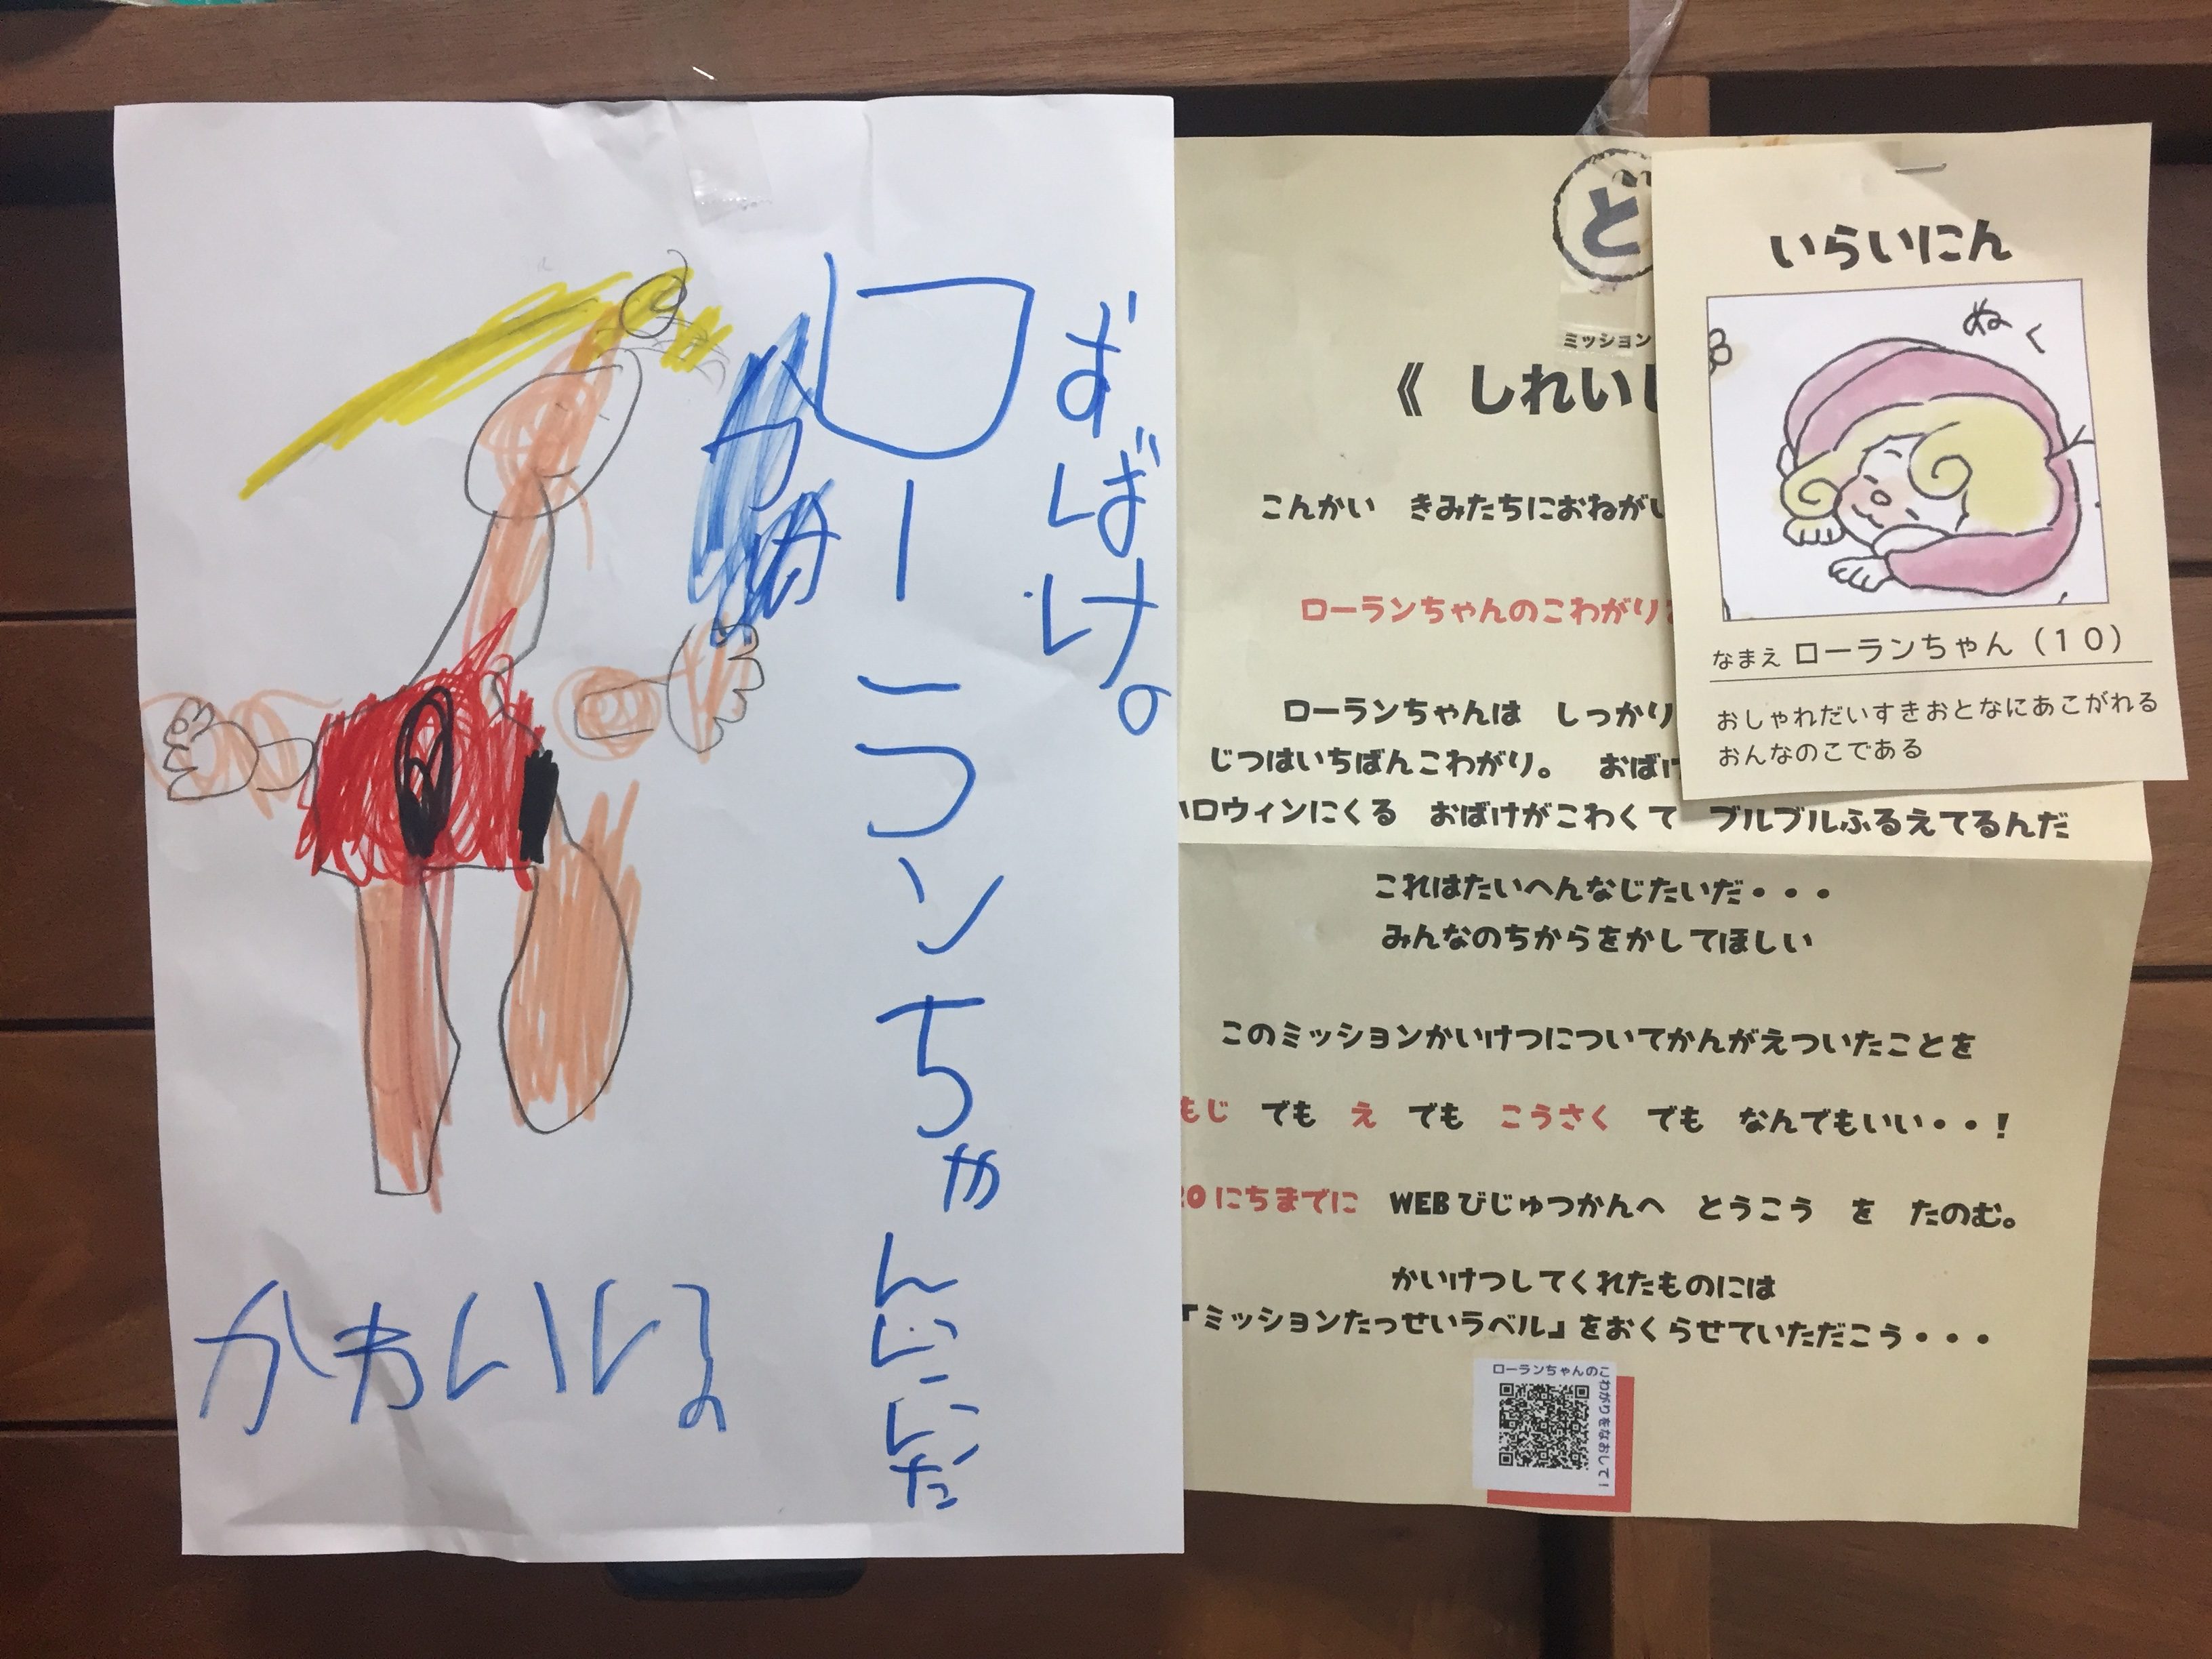 おばけ。
ローランちゃん
かわいい
ど
ミッション
《 しれいし
こんかい きみたちにおねがい
ローランちゃんのこわがりを
ローランちゃんは しっかり
じつはいちばんこわがり。 おばけ
ハロウィンにくる おばけがこわくて ブルブルふるえてるんだ
これはたいへんなじたいだ・・・
みんなのちからをかしてほしい
このミッションかいけつについてかんがえついたことを
もじ でも え でも こうさく でも なんでもいい・・!
20にちまでに WEBびじゅつかんへ とうこう を たのむ。
かいけつしてくれたものには
「ミッションたっせいラベル」をおくらせていただこう・・・
ローランちゃんのこわがりをなおして!
いらいにん
ぬく
なまえ ローランちゃん(10)
おしゃれだいすきおとなにあこがれる
おんなのこである